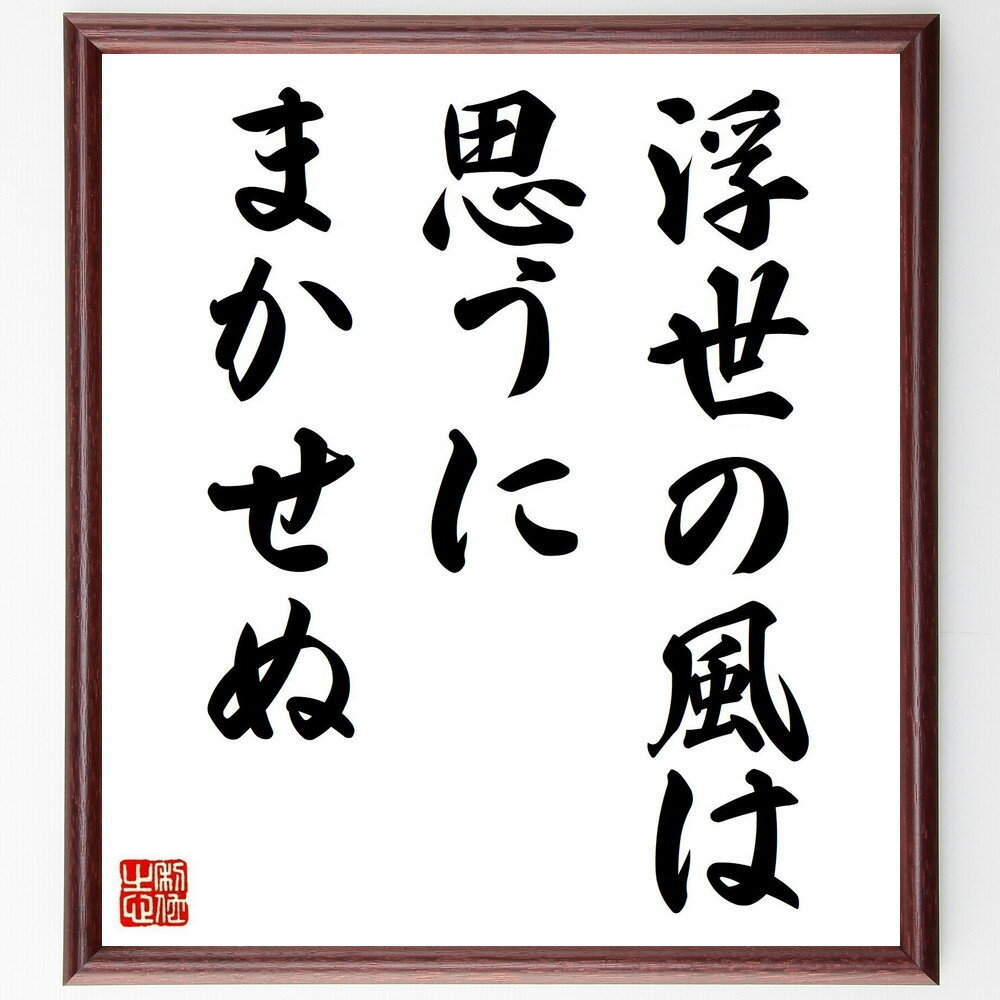 浮世の風は
思うに
まかせぬ